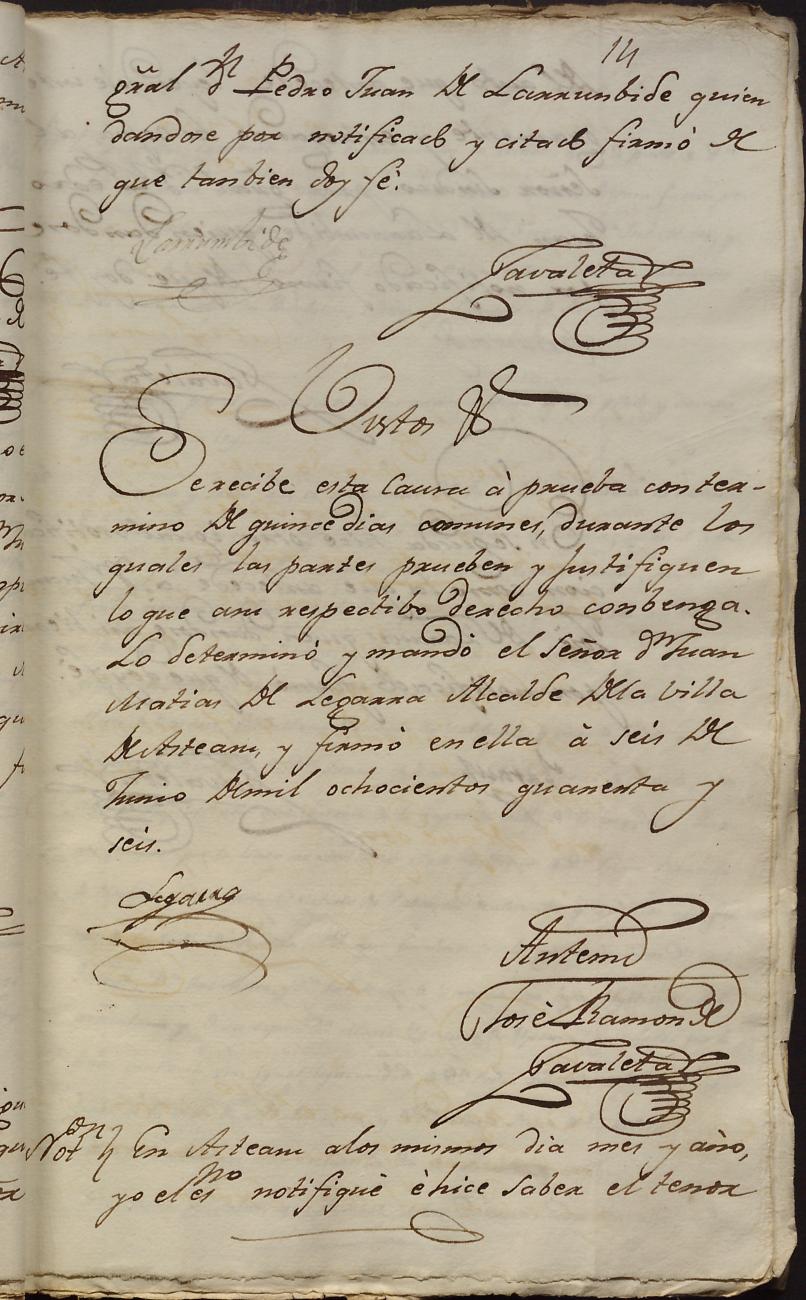 14
gral dn Pedro Juan de Larrunbide quien
dandose por notificado y citado firmó de
que tanbien doy fé.
Larrumbide
Zavaleta
Vistos &
Se recibe esta Causa à prueba con ter-
mino de quince dias comunes, durante los
quales las partes prueben y justifiquen
lo que asu respectibo derecho conbenga.
Lo determinó y mandó el Señor dn Juan
Matias de Legarra Alcalde dela villa
de Asteasu, y firmó en ella à seis de
Junio demil ochocientos quarenta y
seis.
Legarra
Antemi
José Ramon de
Zavaleta
Noton En Asteasu alos mismos dia mes y año,
yo el esno notifiqué è hice saber el tenor